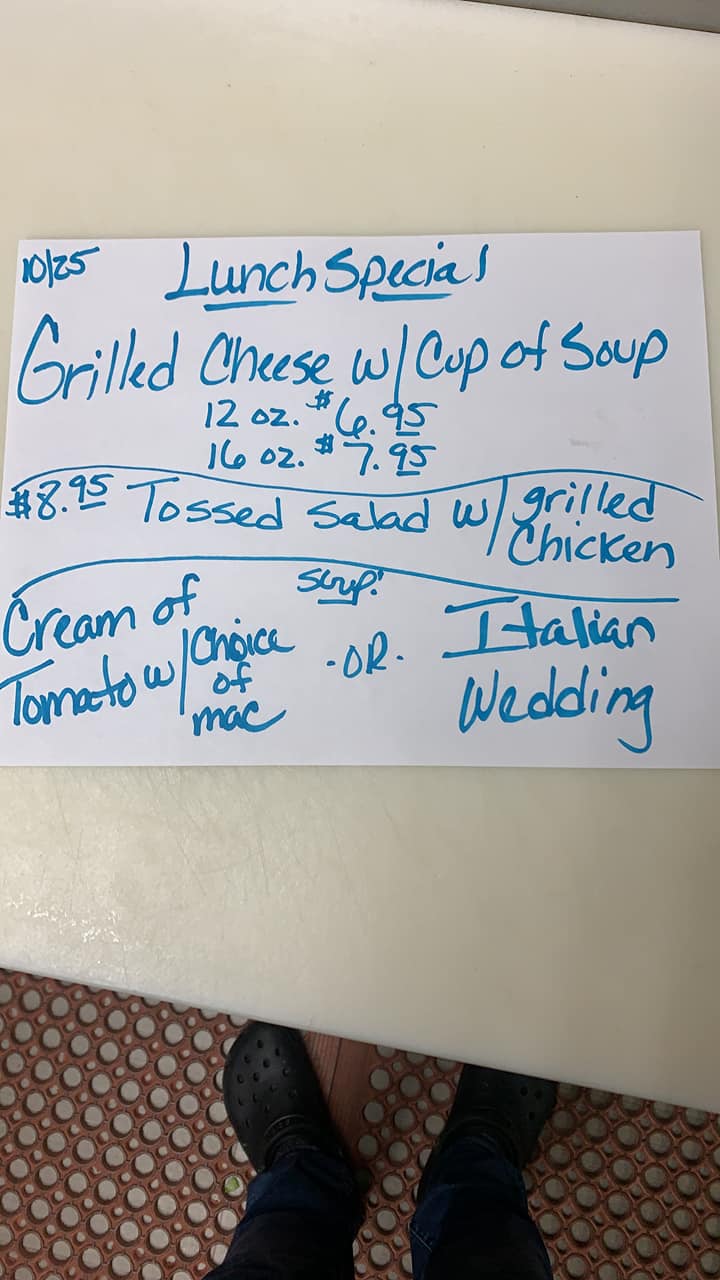 10/25 Lunch Special
Grilled Cheese w/ Cup of Soup
12 oz. $6.95
16 oz. $7.95
$8.95 Tossed Salad w/ grilled
Chicken
Soup:
Cream of
Tomato w/ Choice
of
mac
-OR-
Italian
Wedding